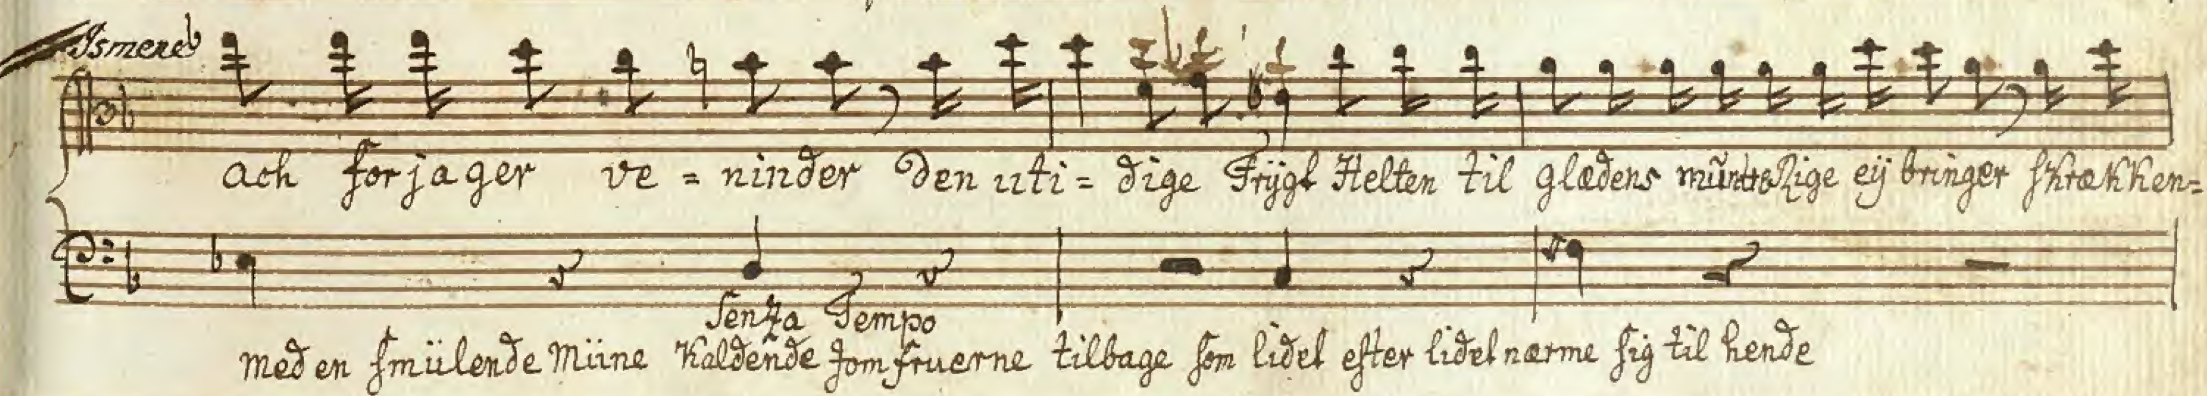 Ismene
ach forjager ve = ninder den uti = dige Frÿgt Helten til glædens müntre Rige eÿ bringer skrækken =
Senza Tempo
med en smülende Miine Kaldende Jomfruerne tilbage som lidet efter lidet nærme sig til hende